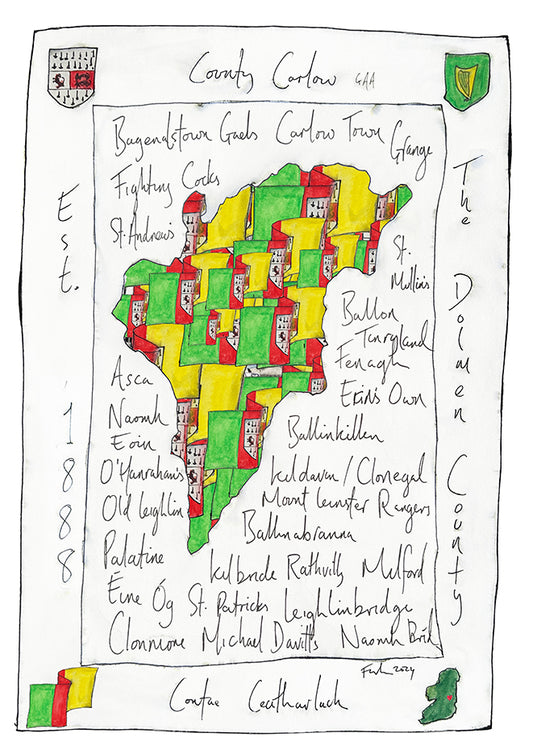 County Carlow GAA
Bagenalstown Gaels Carlow Town Grange
Fighting Cocks
St. Andrews
St. Mullins
Ballon
Tinryland
Fenagh
Erin's Own
Asca
Naomh Eoin
Ballinkillen
O'Hanrahans
Kildavin/Clonegal
Old Leighlin
Mount Leinster Rangers
Ballinabranna
Palatine
Kilbride Rathvilly Milford
Éire Óg St. Patricks Leighlinbridge
Clonmore Michael Davitts Naomh Bríd
2024
Est. 1888
The Dolmen County
Contae Ceatharlach